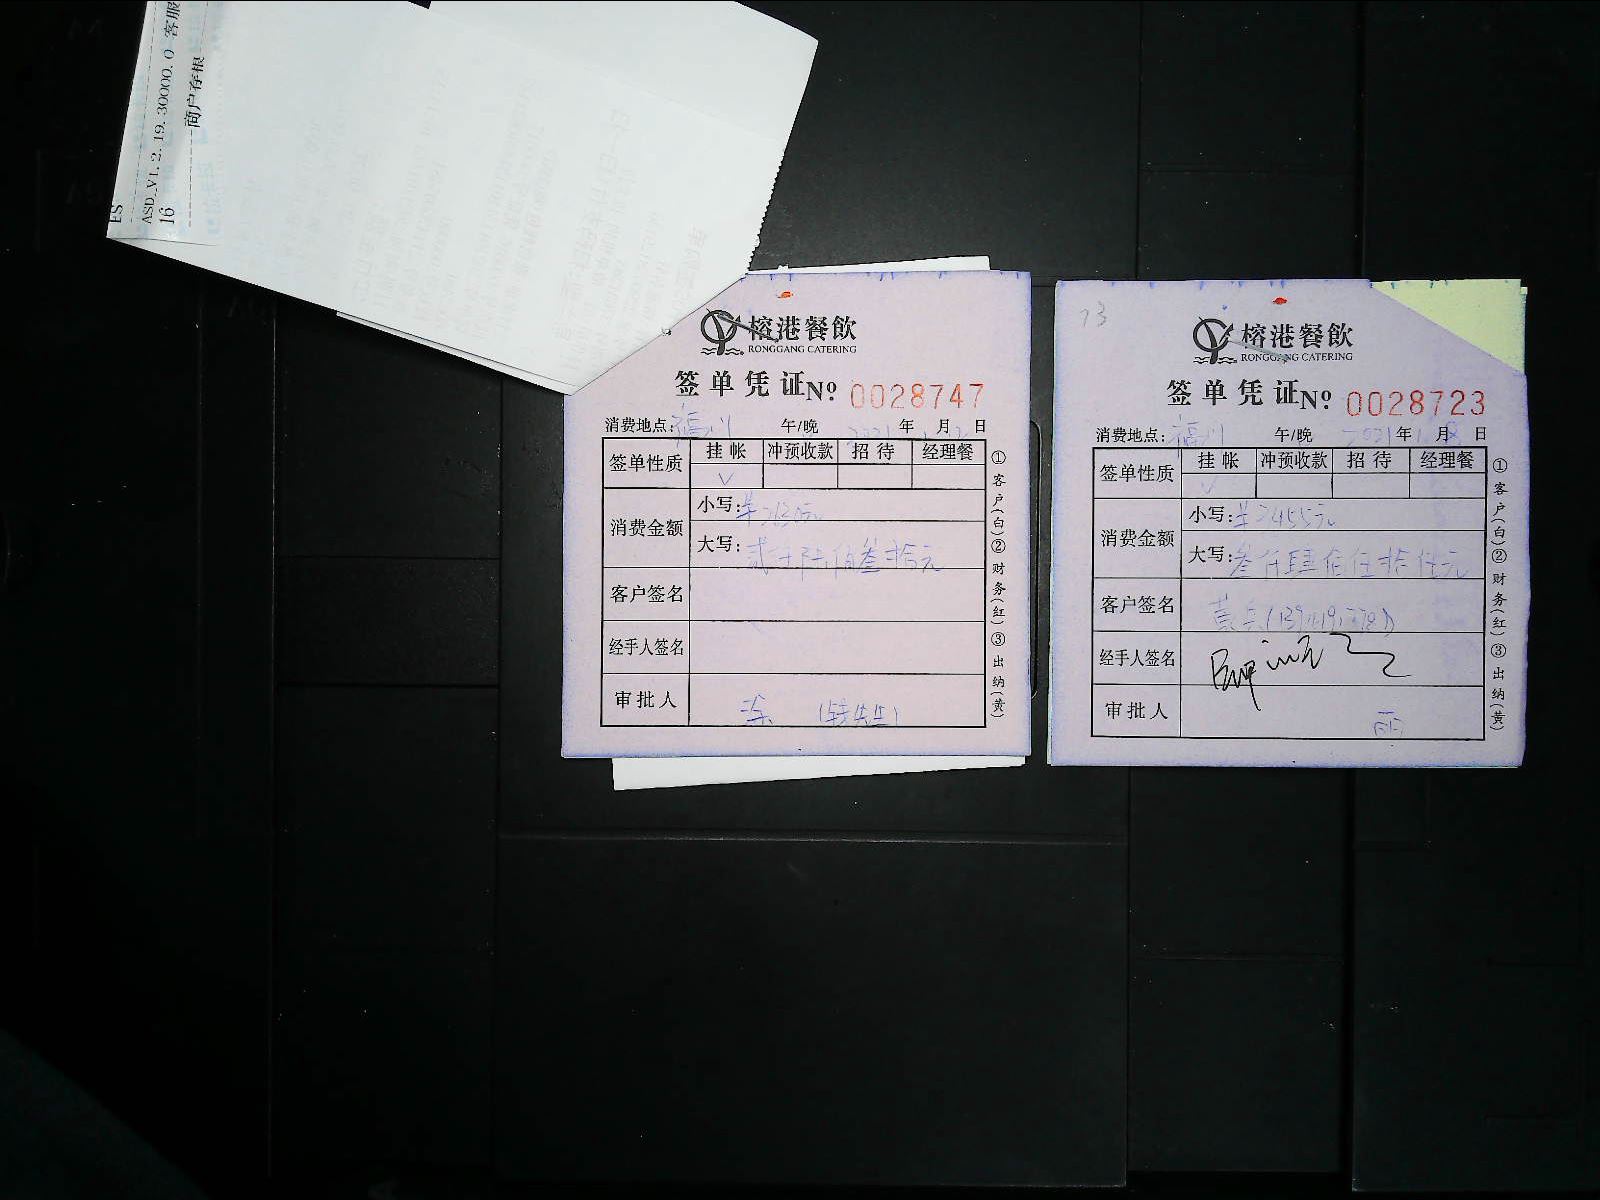 ES
ASD_V1.2.19.30000.0 客服
16
商户存根
榕港餐飲
RONGGANG CATERING
签单凭证№ 0028747
消费地点: 福川 午/晚 2021年 月 日
签单性质 挂帐 冲预收款 招待 经理餐
√
消费金额 小写:
大写: 贰仟陆佰叁拾元
客户签名
经手人签名
审批人 涂 (钱先生)
①客户(白)②财务(红)③出纳(黄)
73
榕港餐飲
RONGGANG CATERING
签单凭证№ 0028723
消费地点: 福川 午/晚 2021年 月 日
签单性质 挂帐 冲预收款 招待 经理餐
√
消费金额 小写: 元
大写: 叁仟肆佰伍拾伍元
客户签名
经手人签名
审批人
①客户(白)②财务(红)③出纳(黄)